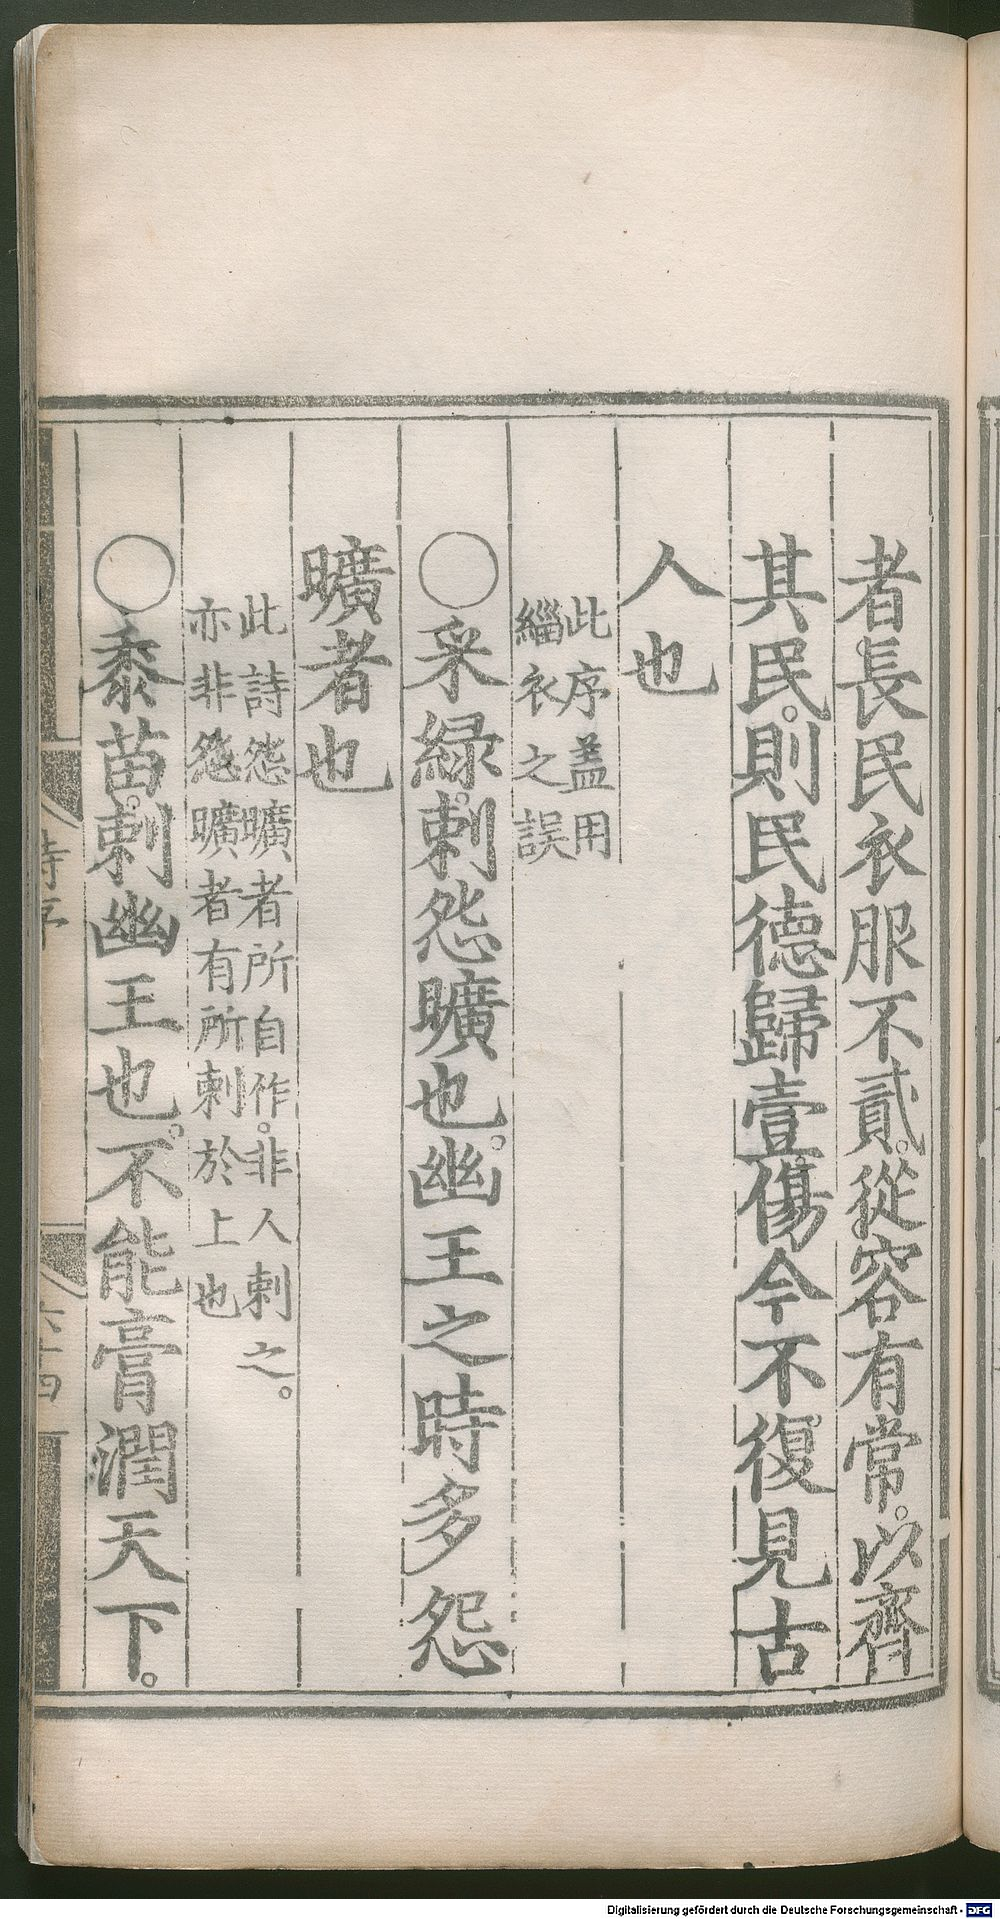 者長民衣服不貳。從容有常。以齊
其民。則民德歸壹。傷今不復見古
人也
此序蓋用
緇衣之誤
○采綠。刺怨曠也。幽王之時多怨
曠者也
此詩怨曠者所自作。非人刺之。
亦非怨曠者有所刺於上也
○黍苗。刺幽王也。不能膏潤天下。
詩序
Digitalisierung gefördert durch die Deutsche Forschungsgemeinschaft - DFG